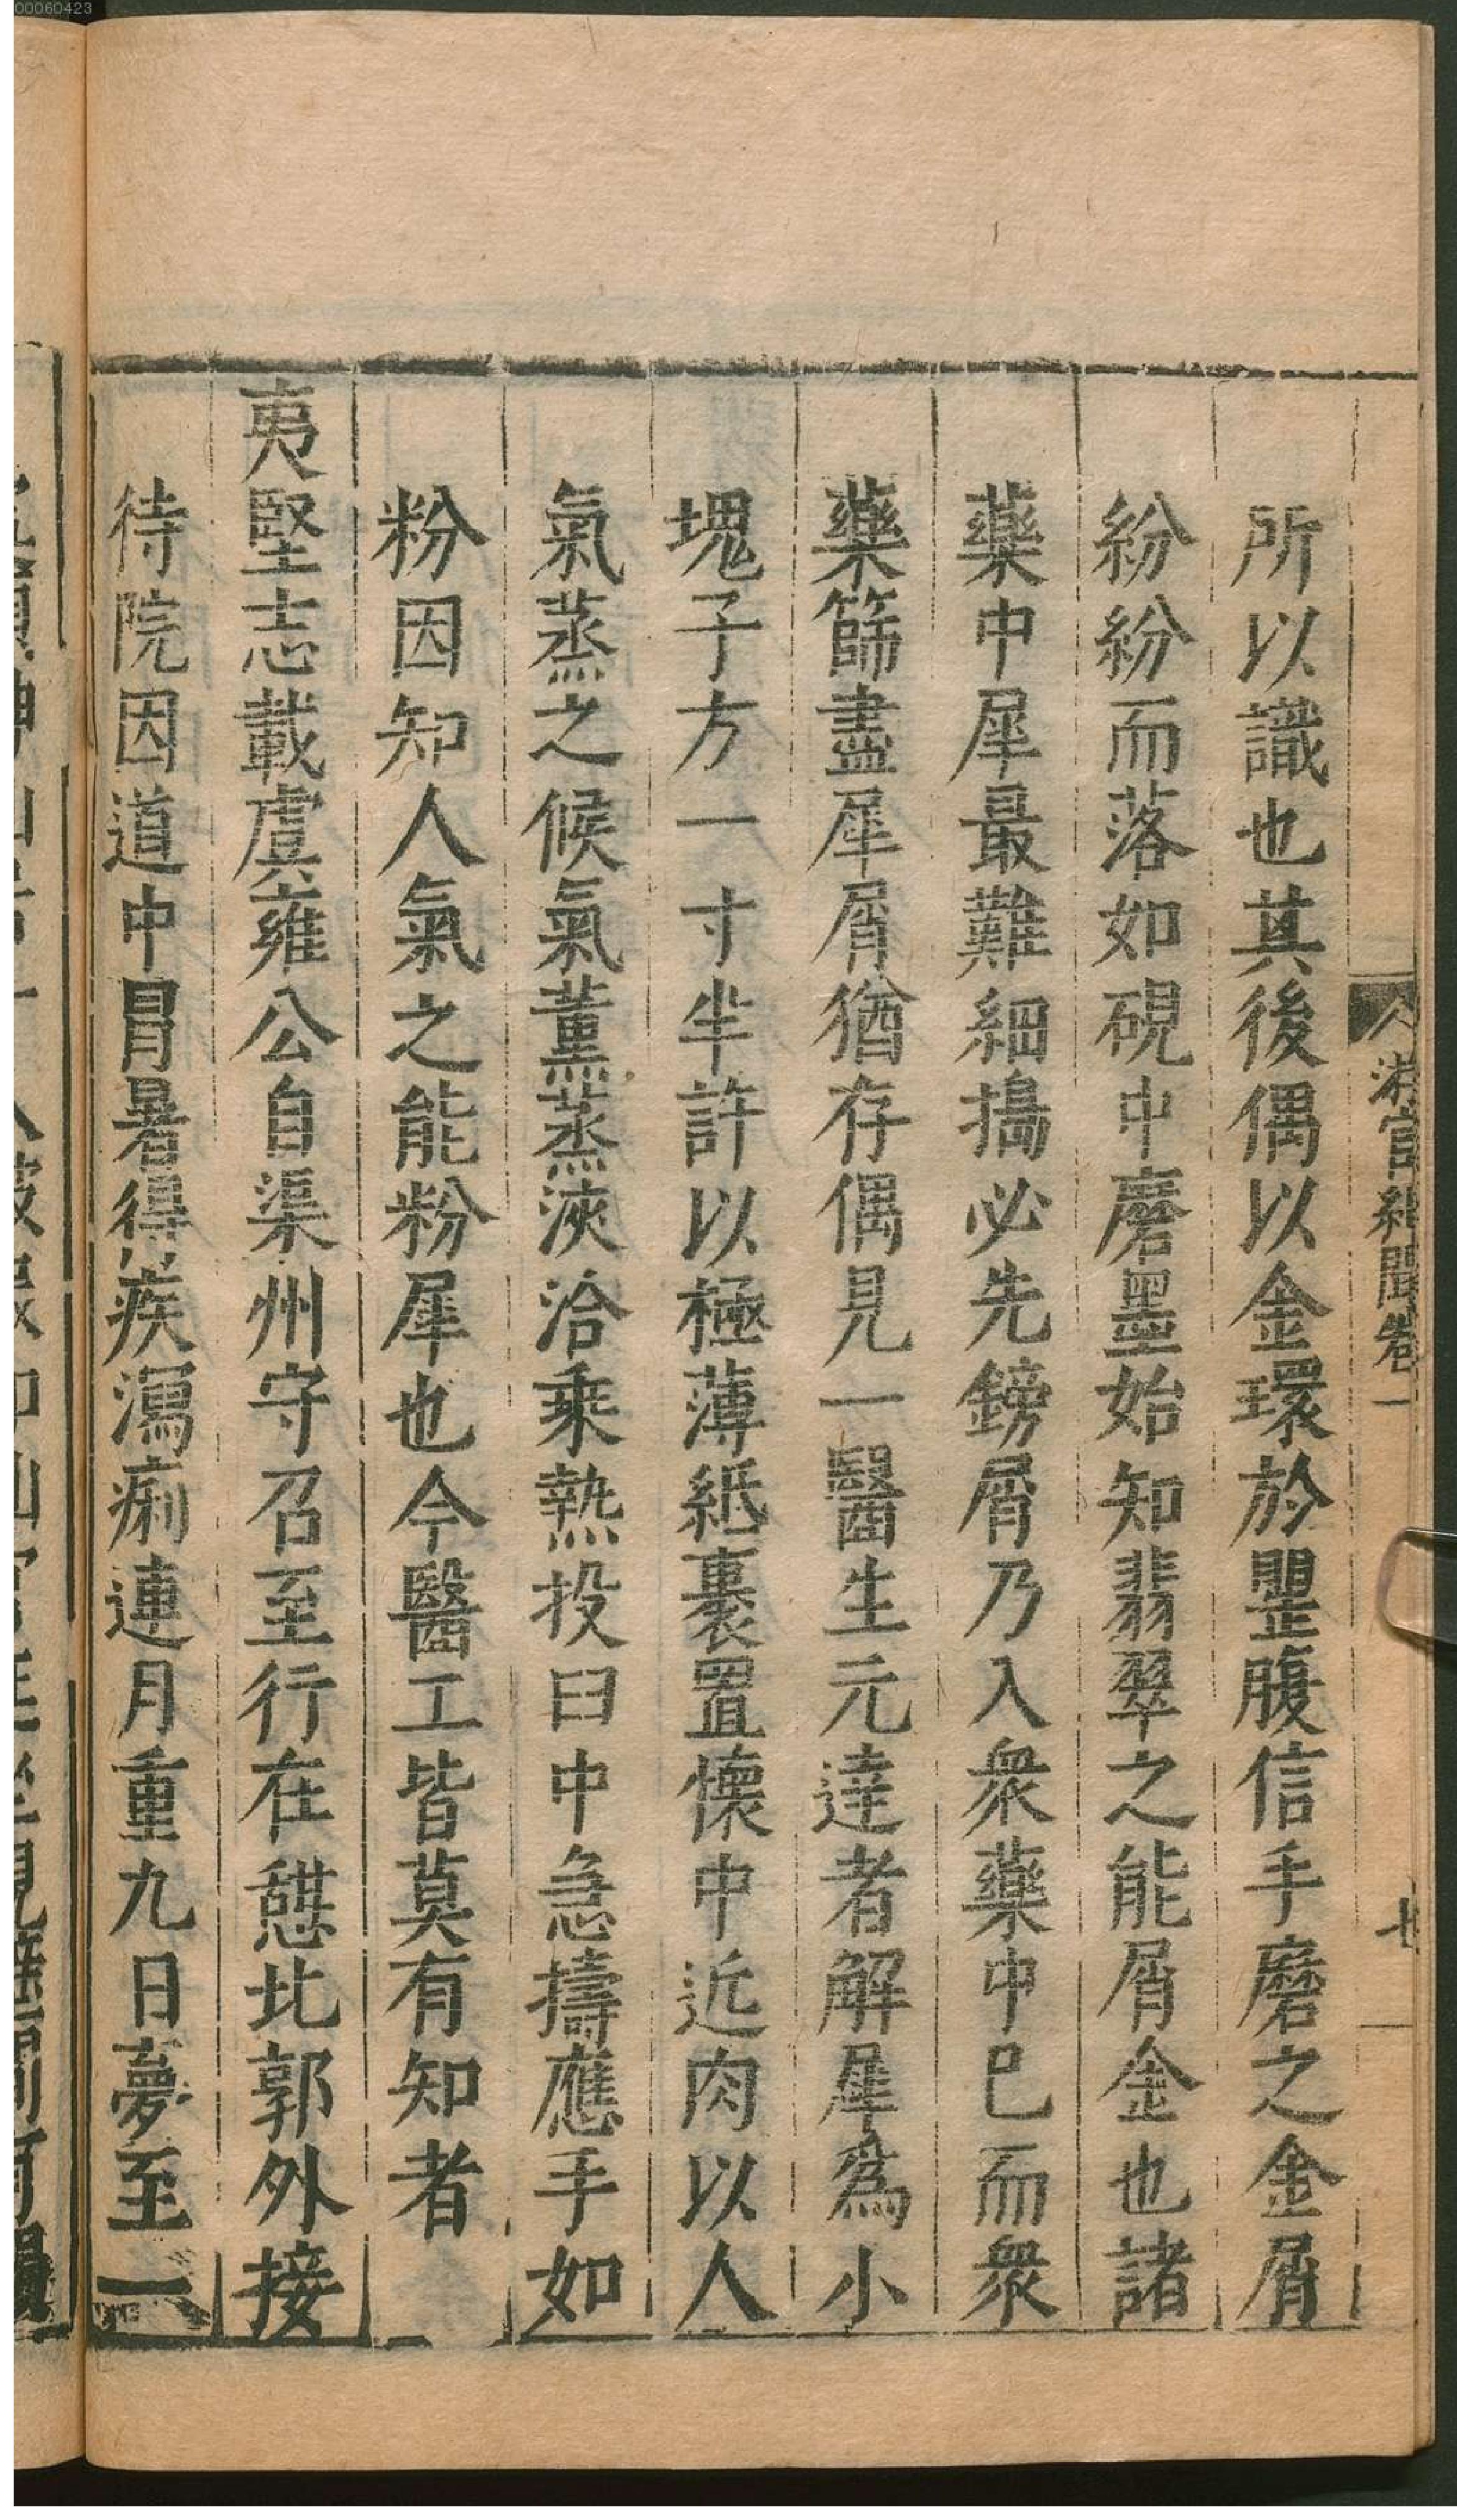 00060423
所以識也其後偶以金環於甖腹信手磨之金屑
紛紛而落如硯中磨墨始知翡翠之能屑金也諸
藥中犀最難細搗必先鎊屑乃入衆藥中巳而衆
藥篩盡犀屑猶存偶見一醫生元達者解犀爲小
塊子方一寸半許以極薄紙裹置懷中近肉以人
氣蒸之候氣薰蒸浹洽乘熱投臼中急擣應手如
粉因知人氣之能粉犀也今醫工皆莫有知者
夷堅志載虞雍公自渠州守召至行在憇北郭外接
待院因道中冒暑得疾瀉痢連月重九日夢至一
卷一
七